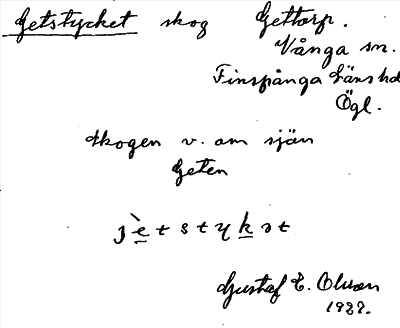 Getstycket skog Gettorp.
Vånga sn.
Finspånga läns hd
Ögl.
skogen v. om sjön
Geten
jètstykət
Gustaf E. Olsson
1927.